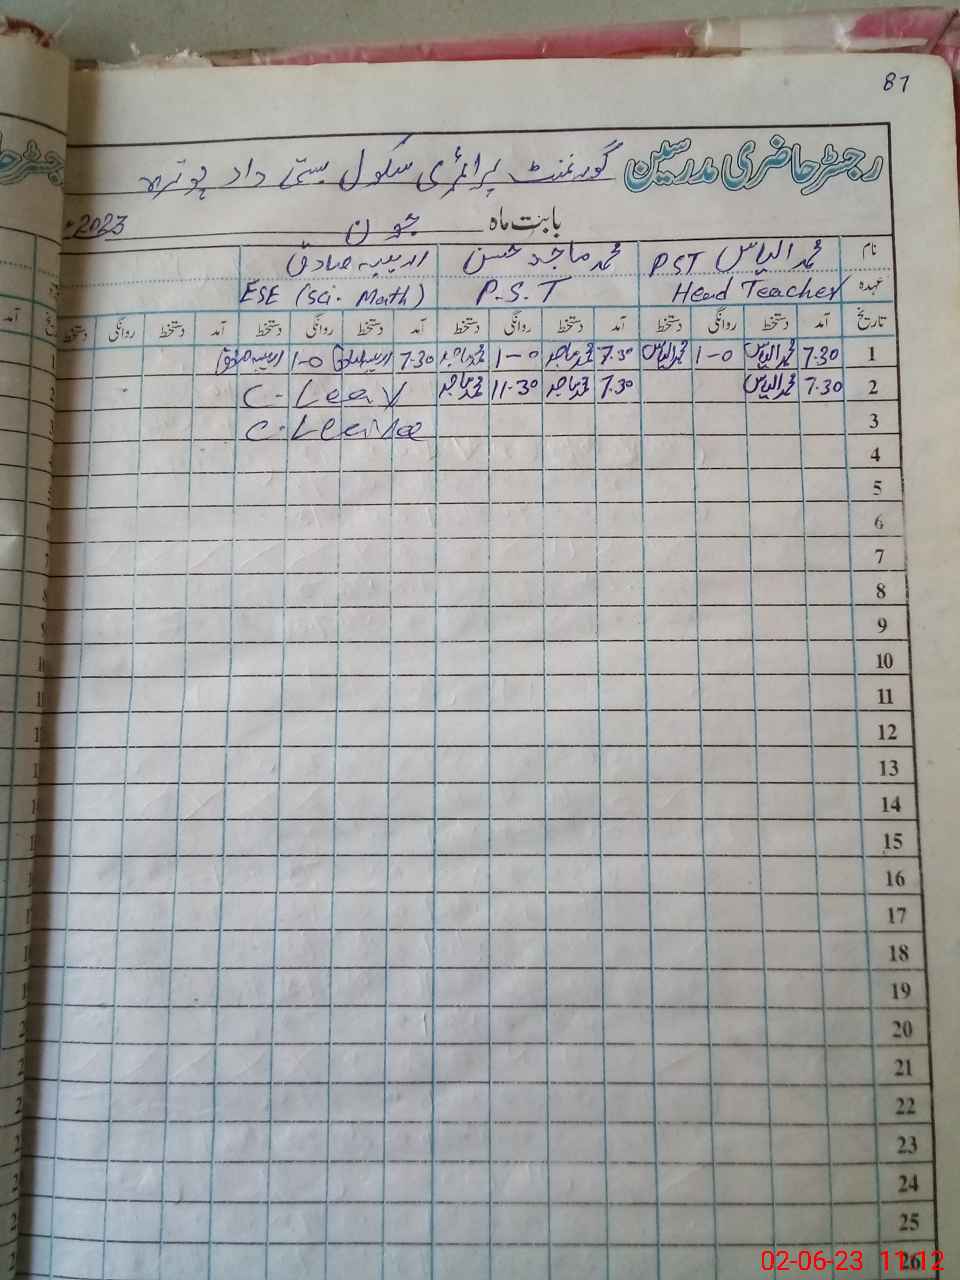 87
رجسٹر حاضری مدرسین گورنمنٹ پرائمری سکول بستی داد پوترہ
بابت ماہ جون 2023
نام محمد الیاس PST محمد ماجد حسن ادیبہ صادق
عہدہ Head Teacher P.S.T ESE (Sci. Math)
تاریخ آمد دستخط روانگی دستخط آمد دستخط روانگی دستخط آمد دستخط روانگی دستخط آمد دستخط روانگی دستخط
1 7.30 محمد الیاس 1-0 محمد الیاس 7.30 محمد ماجد 1-0 محمد ماجد 7.30 ادیبہ صادق 1-0 ادیبہ صادق
2 7.30 محمد الیاس 7.30 محمد ماجد 11.30 محمد ماجد C-Leav
3 C-Leave
4
5
6
7
8
9
10
11
12
13
14
15
16
17
18
19
20
21
22
23
24
25
26
02-06-23 11:12